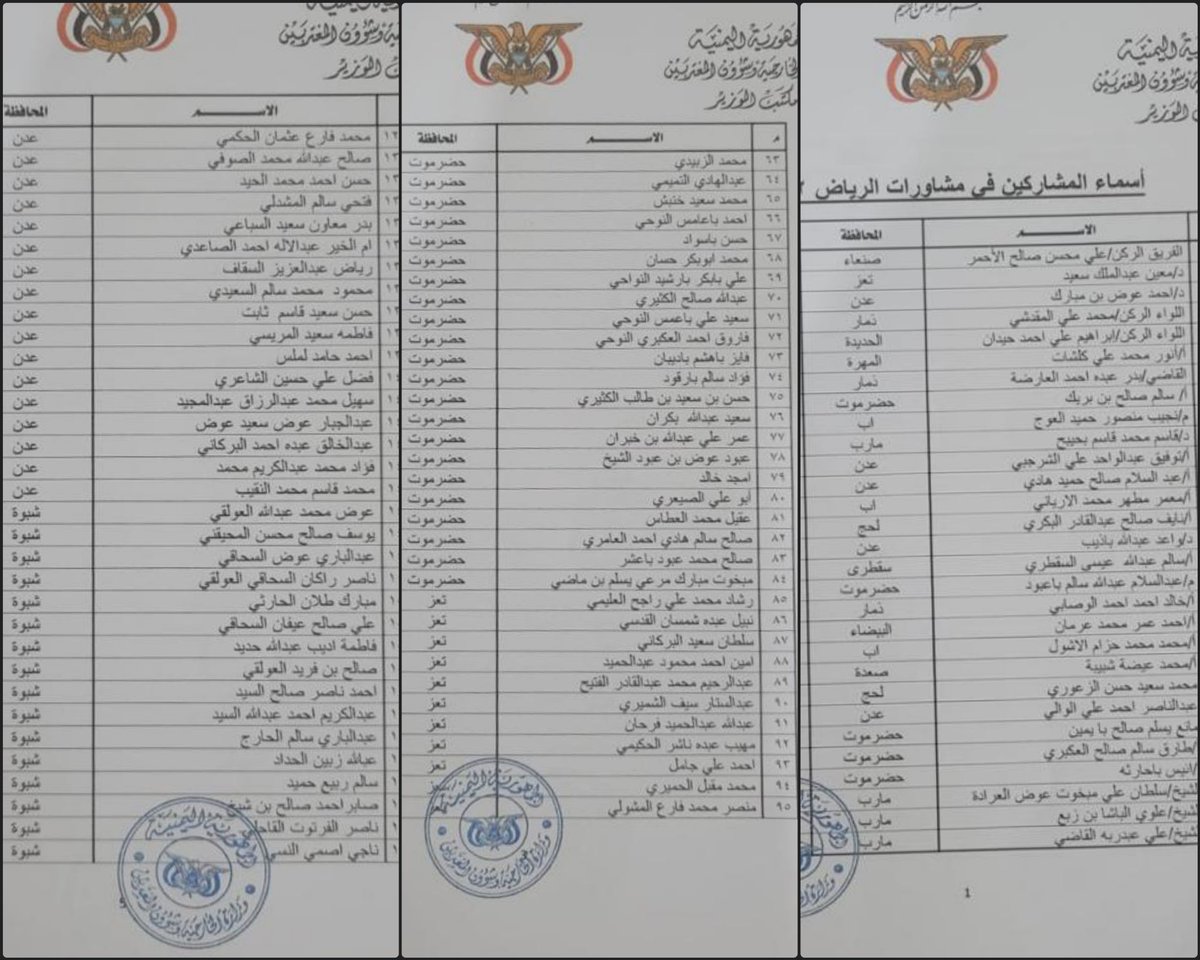 بسم الله الرحمن الرحيم
وشؤون المغتربين
الوزير
أسماء المشاركين في مشاورات الرياض
الاســـــم المحافظة
الفريق الركن/علي محسن صالح الأحمر صنعاء
د/معين عبدالملك سعيد تعز
د/احمد عوض بن مبارك عدن
اللواء الركن/محمد علي المقدشي ذمار
اللواء الركن/ابراهيم علي احمد حيدان الحديدة
أ/أنور محمد علي كلشات المهرة
القاضي/بدر عبده احمد العارضة ذمار
أ/ سالم صالح بن بريك حضرموت
م/نجيب منصور حميد العوج اب
د/قاسم محمد قاسم بحيبح مارب
أ/توفيق عبدالواحد علي الشرجبي عدن
أ/عبد السلام صالح حميد هادي عدن
أ/معمر مطهر محمد الارياني اب
أ/نايف صالح عبدالقادر البكري لحج
د/واعد عبدالله باذيب عدن
أ/سالم عبدالله عيسى السقطري سقطرى
م/عبدالسلام عبدالله سالم باعبود حضرموت
أ/خالد احمد احمد الوصابي ذمار
أ/احمد عمر محمد عرمان البيضاء
أ/محمد محمد حزام الاشول اب
أ/محمد عيضة شبيبة صعدة
محمد سعيد حسن الزعوري لحج
عبدالناصر احمد علي الوالي عدن
مانع يسلم صالح با يمين حضرموت
/طارق سالم صالح العكبري حضرموت
/انيس باحارثه حضرموت
لشيخ/سلطان علي مبخوت عوض العرادة مارب
شيخ/علوي الباشا بن زبع مارب
شيخ/علي عبدربه القاضي مارب
1
الجمهورية اليمنية
وزارة الخارجية وشؤون المغتربين
مهورية اليمنية
لخارجية وشؤون المغتربين
مكتب الوزير
م الاســـــم المحافظة
٦٣ محمد الزبيدي حضرموت
٦٤ عبدالهادي التميمي حضرموت
٦٥ محمد سعيد خنبش حضرموت
٦٦ احمد باعامس النوحي حضرموت
٦٧ حسن باسواد حضرموت
٦٨ محمد ابوبكر حسان حضرموت
٦٩ علي بابكر بارشيد النواحي حضرموت
٧٠ عبدالله صالح الكثيري حضرموت
٧١ سعيد علي باعمس النوحي حضرموت
٧٢ فاروق احمد العكبري النوحي حضرموت
٧٣ فايز باهشم باديبان حضرموت
٧٤ فؤاد سالم بارقود حضرموت
٧٥ حسن بن سعيد بن طالب الكثيري حضرموت
٧٦ سعيد عبدالله بكران حضرموت
٧٧ عمر علي عبدالله بن خبران حضرموت
٧٨ عبود عوض بن عبود الشيخ حضرموت
٧٩ امجد خالد حضرموت
٨٠ أبو علي الصيعري حضرموت
٨١ عقيل محمد العطاس حضرموت
٨٢ صالح سالم هادي احمد العامري حضرموت
٨٣ صالح محمد عبود باعشر حضرموت
٨٤ مبخوت مبارك مرعي يسلم بن ماضي حضرموت
٨٥ رشاد محمد علي راجح العليمي تعز
٨٦ نبيل عبده شمسان القدسي تعز
٨٧ سلطان سعيد البركاني تعز
٨٨ امين احمد محمود عبدالحميد تعز
٨٩ عبدالرحيم محمد عبدالقادر الفتيح تعز
٩٠ عبدالستار سيف الشميري تعز
٩١ عبدالله عبدالحميد فرحان تعز
٩٢ مهيب عبده ناشر الحكيمي تعز
٩٣ احمد علي جامل تعز
٩٤ محمد مقبل الحميري تعز
٩٥ منصر محمد فارع المشولي
الجمهورية اليمنية
وزارة الخارجية وشؤون المغتربين
وشؤون المغتربين
الوزير
الاســـــم المحافظة
محمد فارع عثمان الحكمي عدن
صالح عبدالله محمد الصوفي عدن
حسن احمد محمد الحيد عدن
فتحي سالم المشدلي عدن
بدر معاون سعيد السباعي عدن
ام الخير عبدالاله احمد الصاعدي عدن
رياض عبدالعزيز السقاف عدن
محمود محمد سالم السعيدي عدن
حسن سعيد قاسم ثابت عدن
فاطمه سعيد المريسي عدن
احمد حامد لملس عدن
فضل علي حسين الشاعري عدن
سهيل محمد عبدالرزاق عبدالمجيد عدن
عبدالجبار عوض سعيد عوض عدن
عبدالخالق عبده احمد البركاني عدن
فؤاد محمد عبدالكريم محمد عدن
محمد قاسم محمد النقيب عدن
عوض محمد عبدالله العولقي شبوة
يوسف صالح محسن المحيقني شبوة
عبدالباري عوض السحاقي شبوة
ناصر راكان السحاقي العولقي شبوة
مبارك طلان الحارثي شبوة
علي صالح عيفان السحاقي شبوة
فاطمة اديب عبدالله حديد شبوة
صالح بن فريد العولقي شبوة
احمد ناصر صالح السيد شبوة
عبدالكريم احمد عبدالله السيد شبوة
عبدالباري سالم الحارج شبوة
عبالله زبين الحداد شبوة
سالم ربيع حميد شبوة
صابر احمد صالح بن شيخ شبوة
ناصر الفرتوت شبوة
ناجي اصمي شبوة
5
الجمهورية اليمنية
وزارة الخارجية وشؤون المغتربين